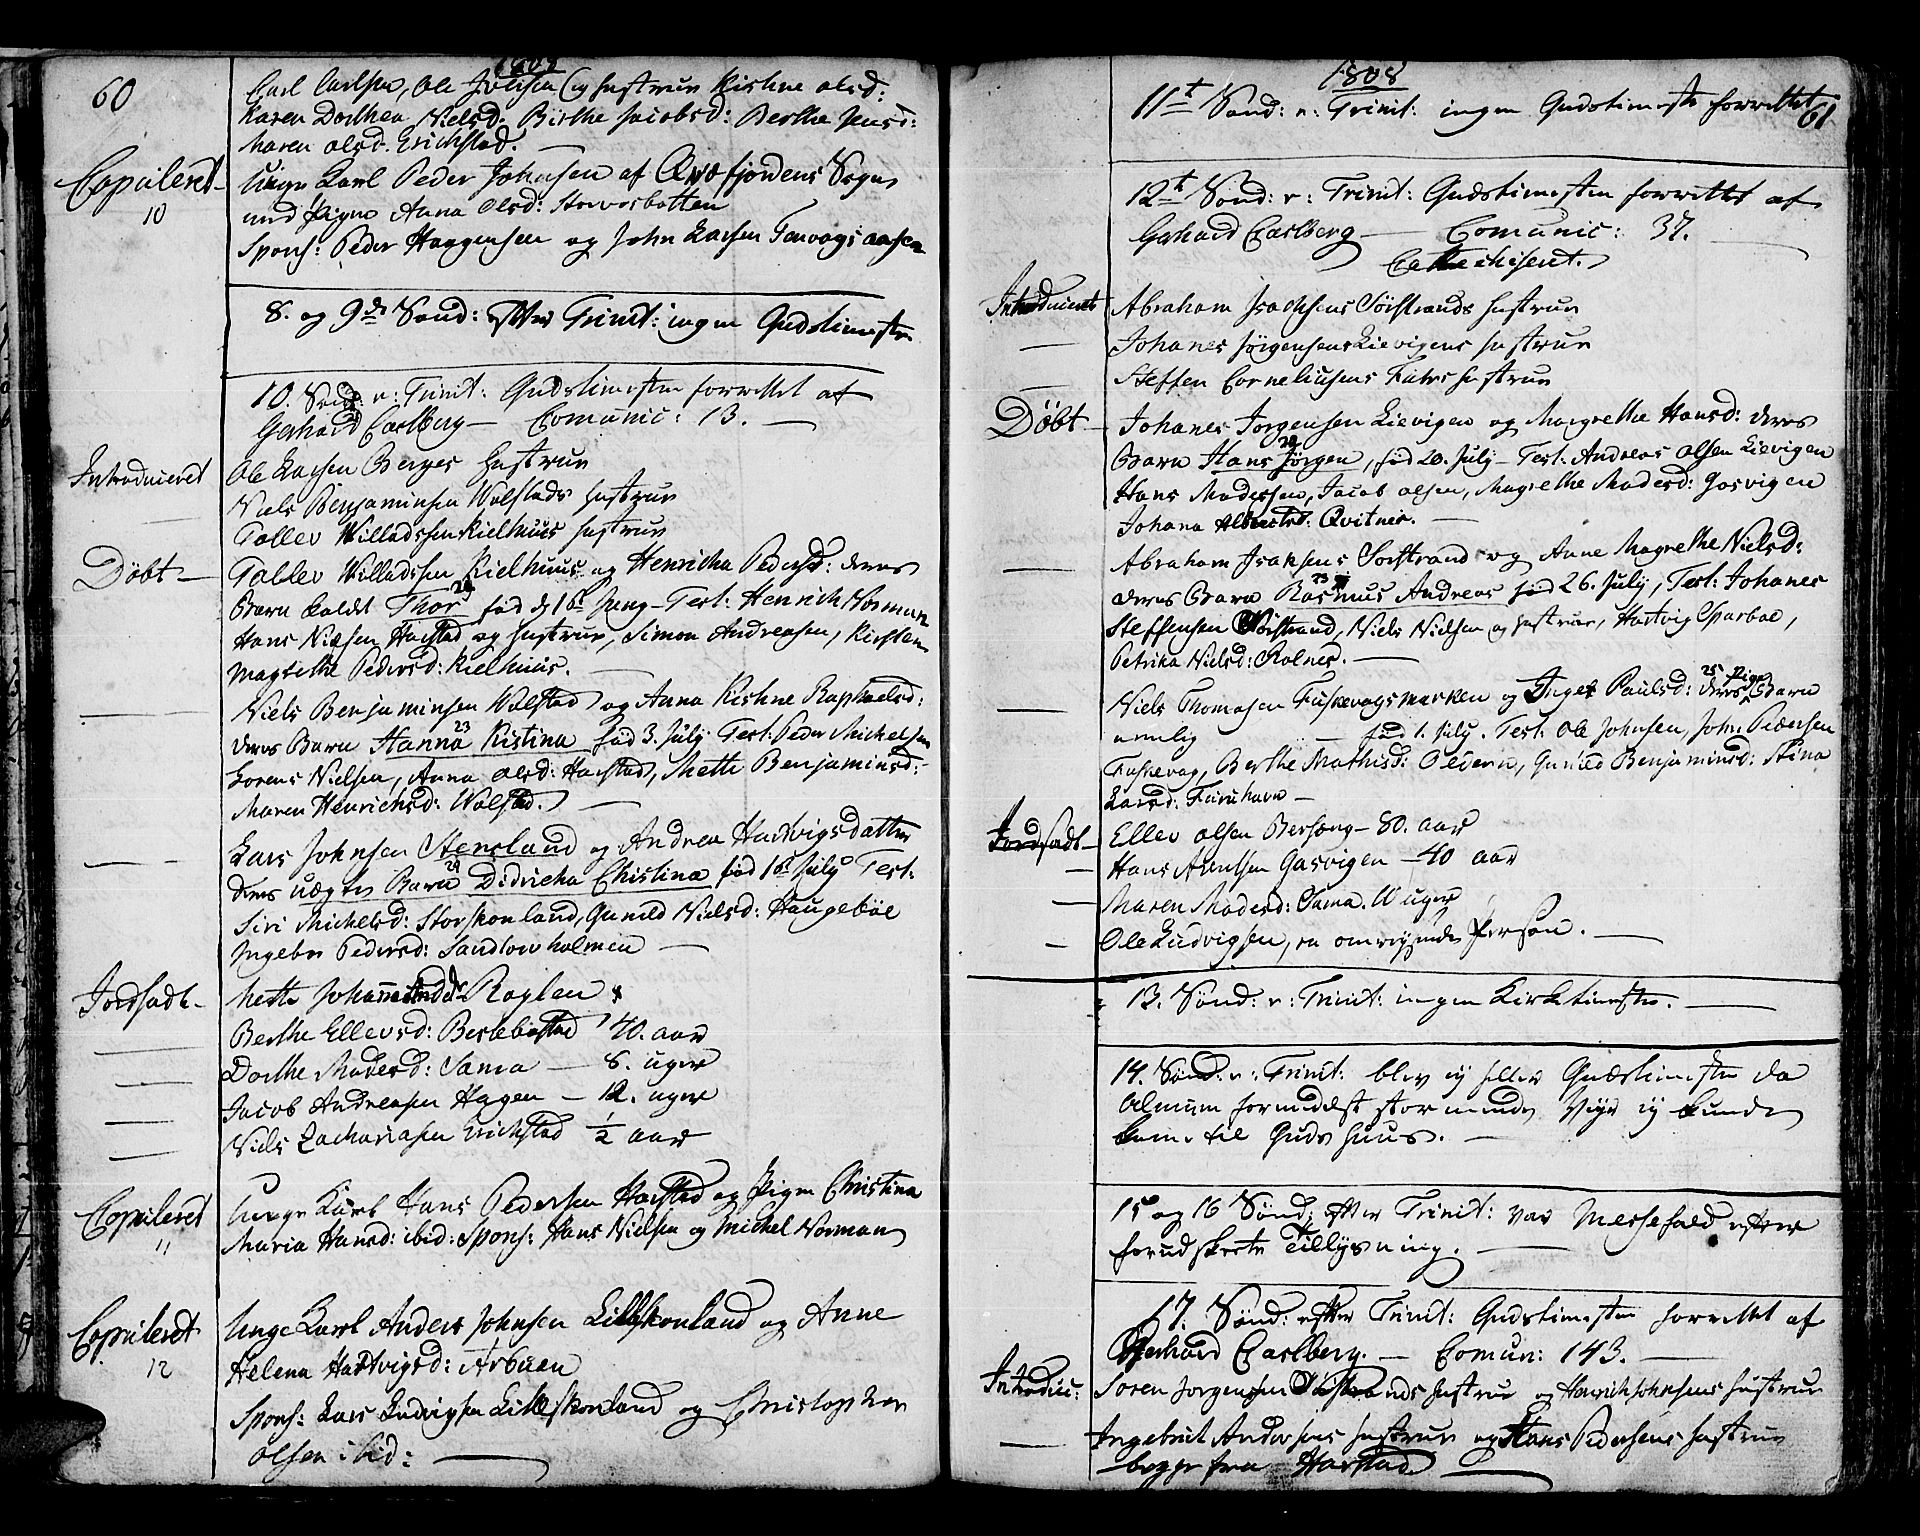 60
1808
Carl Carlsen, Ole Johnsen og hustrue Kistine olsd:
Karen Dorthea Nielsd: Birthe Jacobsd: Berthe Hansd:
Maren olsd. Erichstad. —
Copuleret
10
Unge Karl Peder Johnsen af Qvæfjordens Sogn
med Pigen Anna Olsd: Storvasbotten
Spons: Peder Haggensen og John Larsen Tenvogsaasen
8. og 9de Sønd: efter Trinit: ingen Gudstieneste
10. Sønd: e: Trinit: Gudstienesten forrettet af
Gerhard Carlberg — Comunic: 13. —
Introduceret
Ole Larsen Berges hustrue
Niels Benjaminsen Wolstads hustrue
Tollev Willadssen Kielhuus hustrue
Døbt —
Tollev Willadssen Kielhuus og Henricha Pedersd: deres
Barn kaldt Thor fød d 16 Juny — Test: Henrich Norman
Hans Nielsen Harstad og hustrue, Simon Andreasen, Kirsten
Magrethe Pedersd: Kielhuus. —
Niels Benjaminsen Wolstad og Anna Kistine Raphaelsd:
23
deres Barn Hanna Kistina fød 3. July Test: Peder Michelsen
Lorens Nielsen, Anna Olsd: Harstad, Mette Benjaminsd:
Maren Henrichsd: Wolstad. —
Lars Johnsen Stensland og Andrea Hartvigsdatter
deres uægte Barn Didricha Christina fød 16 July Test:
Siri Michelsd: Storskonland, Gunild Nielsd: Haugebøe
Ingebor Pedersd: Sandtorvholmen —
Jordfædt —
Mette Johannesd: Roglen
Berthe Ellevsd: Berlebostad 40. aar
Dorthe Madesd: Sama — 8. uger
Jacob Andreasen Hagen — 12. uger
Niels Zachariasen Erichstad ½ aar
Copuleret
11
Unge Karl Hans Pedersen Harstad og Pigen Christina
Maria Hansd: ibid: Spons: Hans Nielsen og Michel Norman
Copuleret
12
Unge Karl Anders Johnsen Lilleskonland og Anne
Helena Hartvigsd: Arbuen
Spons: Lars Ludvigsen Lilleskonland og Christopher
Olsen ibid: —
1808
61
11t Sønd: e: Trinit: ingen Gudstieneste forrettet
12t Sønd: e: Trinit: Gudstienesten forrettet af
Gerhard Carlberg — Comunic: 37. —
Catechiseret.
Introduceret
Abraham Isachsens Sørstrands hustrue
Johanes Jørgensens Kievigens hustrue
Steffen Corneliusens hustrue
Døbt —
Johanes Jørgensen Kievigen og Magrethe Hansd: deres
Barn Hans Jørgen, fød 20. July — Test: Andreas Olsen Kievigen
Hans Madessen, Jacob Olsen, Magrethe Madesd: Gosvigen
Johana Qvitnes. —
Abraham Isaksens Sørstrand og Anne Magrethe Nielsd:
23
deres Barn Rasmus Andreas fød 26. July, Test: Johanes
Steffensen Sørstrand, Niels Nielsen og hustrue, Hartvig Sparboe,
Petrika Nielsd: Rolnes. —
25 Pige
Niels Thomasen Fuskevogsmarken og Inger Paulsd: deres Barn
nemlig fød 1. July. Test: Ole Johnsen, John Pedersen
Fuskevog, Berthe Mathisd: Gunild Benjaminsd: Stina
Larsd: —
Jordfædt —
Ellev Olsen Berseng — 80. aar
Hans Arentsen Gasvigen — 40 aar
Maren Madesd: Sama. Uger
Ole Ludvigsen, en omreysende Person. —
13. Sønd: e: Trinit: ingen Kirketieneste. —
14. Sønd: e: Trinit: blev ej heller Gudstieneste da
Almuen formedelst stormende Vejr ej kunde
kome til Guds huus. —
15 og 16 Sønd: efter Trinit: var Messefald efter
forudskeete Tillysning. —
17. Sønd: efter Trinit: Gudstienesten forrettet af
Gerhard Carlberg. — Comun: 143. —
Introduc:
Soren Jorgensen hustrue og Henrich Johnsens hustrue
Ingebrict Andersens hustrue og Hans Pedersens hustrue
begge fra Harstad —